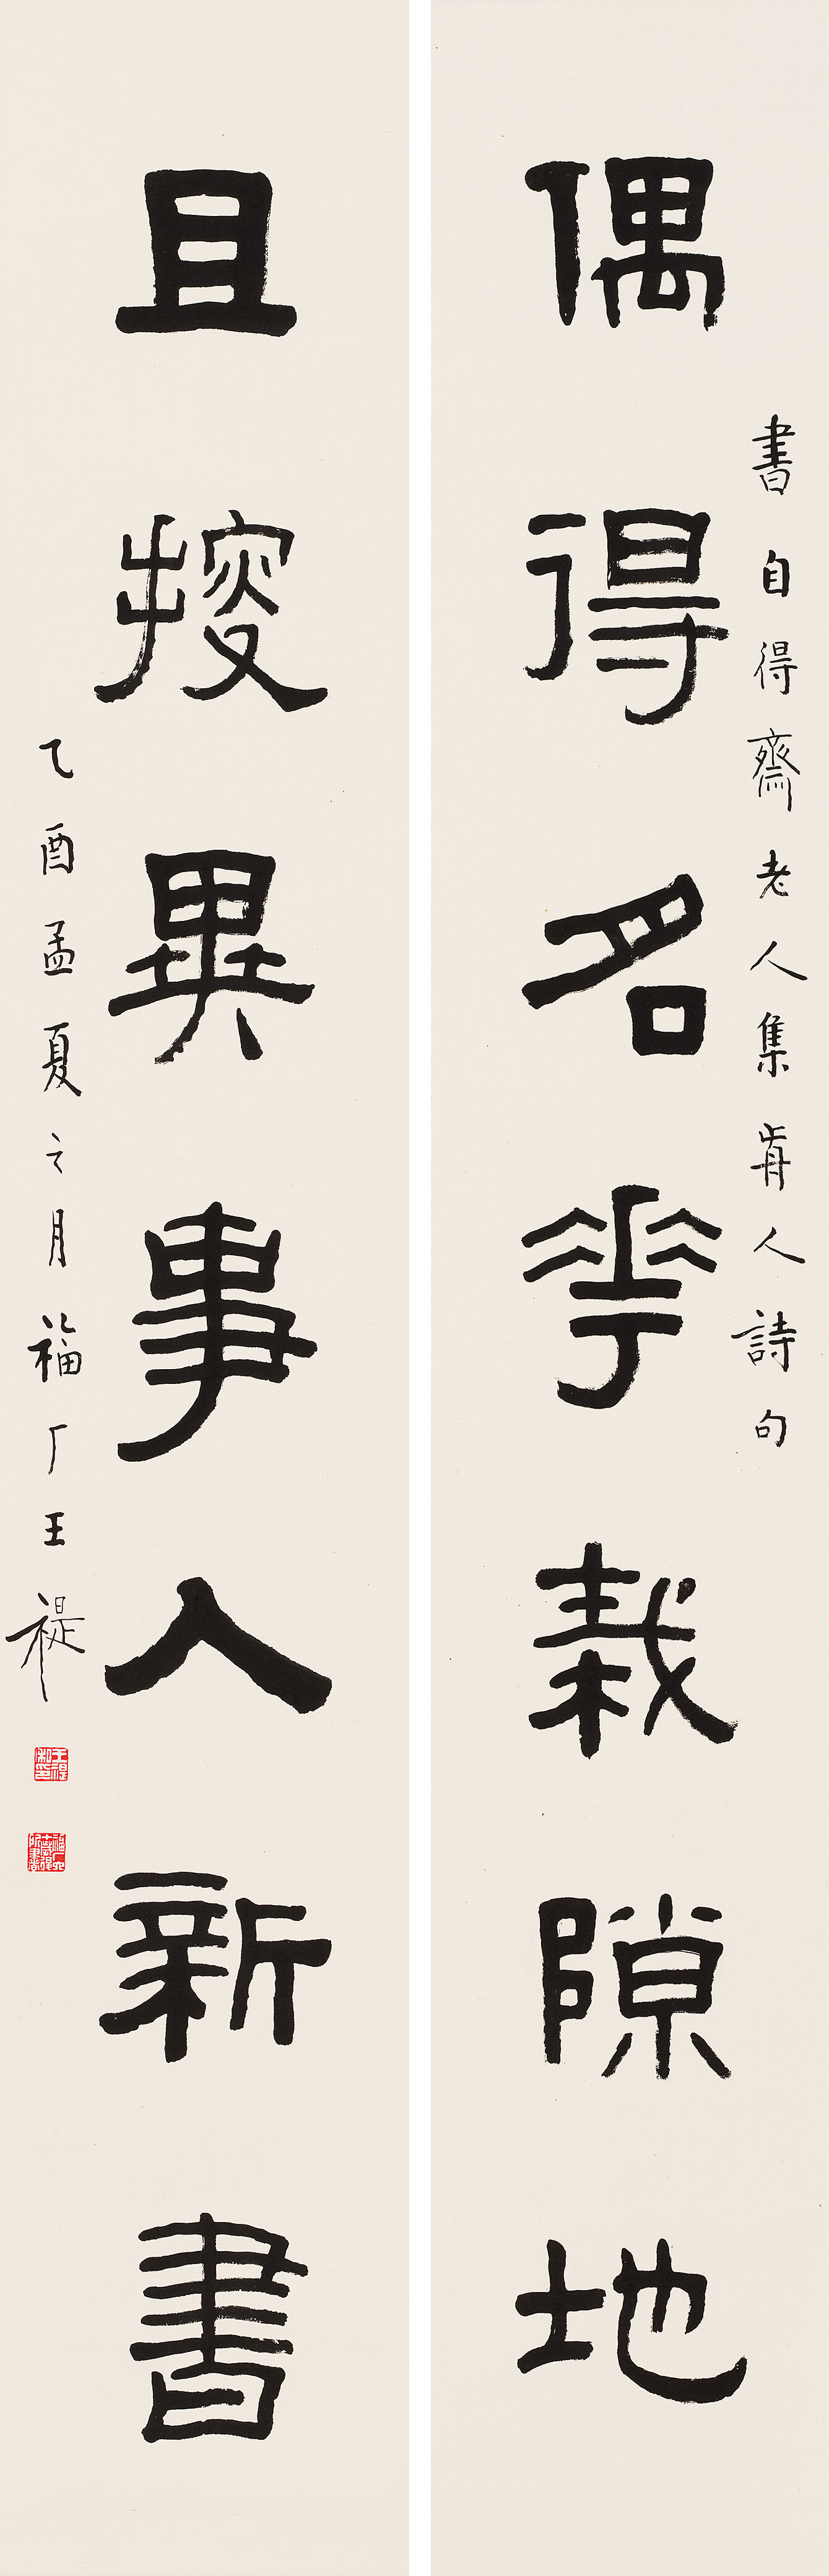 書自得齋老人集前人詩句
偶得名華栽隙地
且搜異事入新書
乙酉孟夏之月福厂王禔
王禔私印